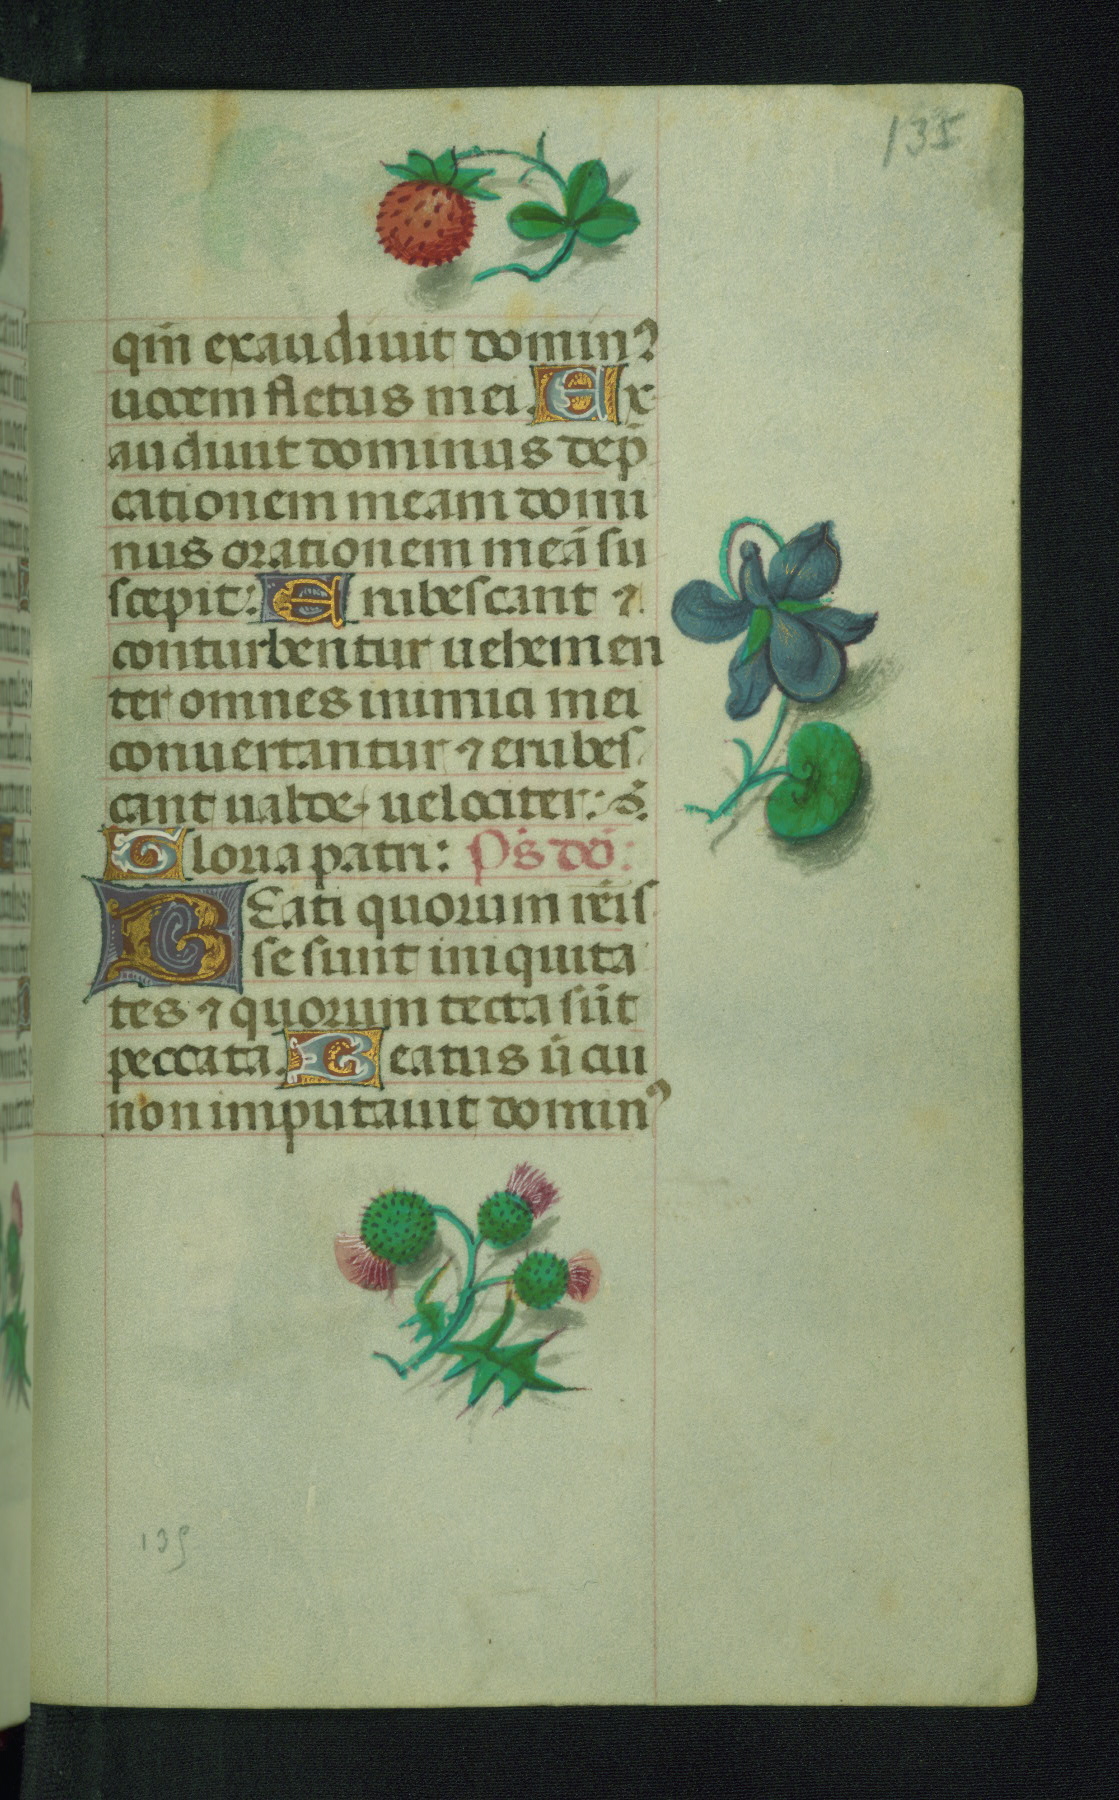 135
qm̄ exaudiuit dominꝰ
uocem fletus mei. Ex
audiuit dominus dep̄
cationem meam domi
nus orationem meā su
scepit: Erubescant ⁊
conturbentur uehemen
ter omnes inimici mei
conuertantur ⁊ erubes
cant ualde uelociter: s̄.
Gloria patri: Ps̄ dd̄:
Beati quorum rēis
se sunt iniquita
tes ⁊ quorum tecta sūt
peccata. Beatus ūi cui
non imputauit dominꝰ
135